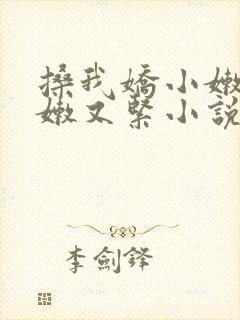 搡我嬌小嫩
嫩又緊小說
李劍鋒